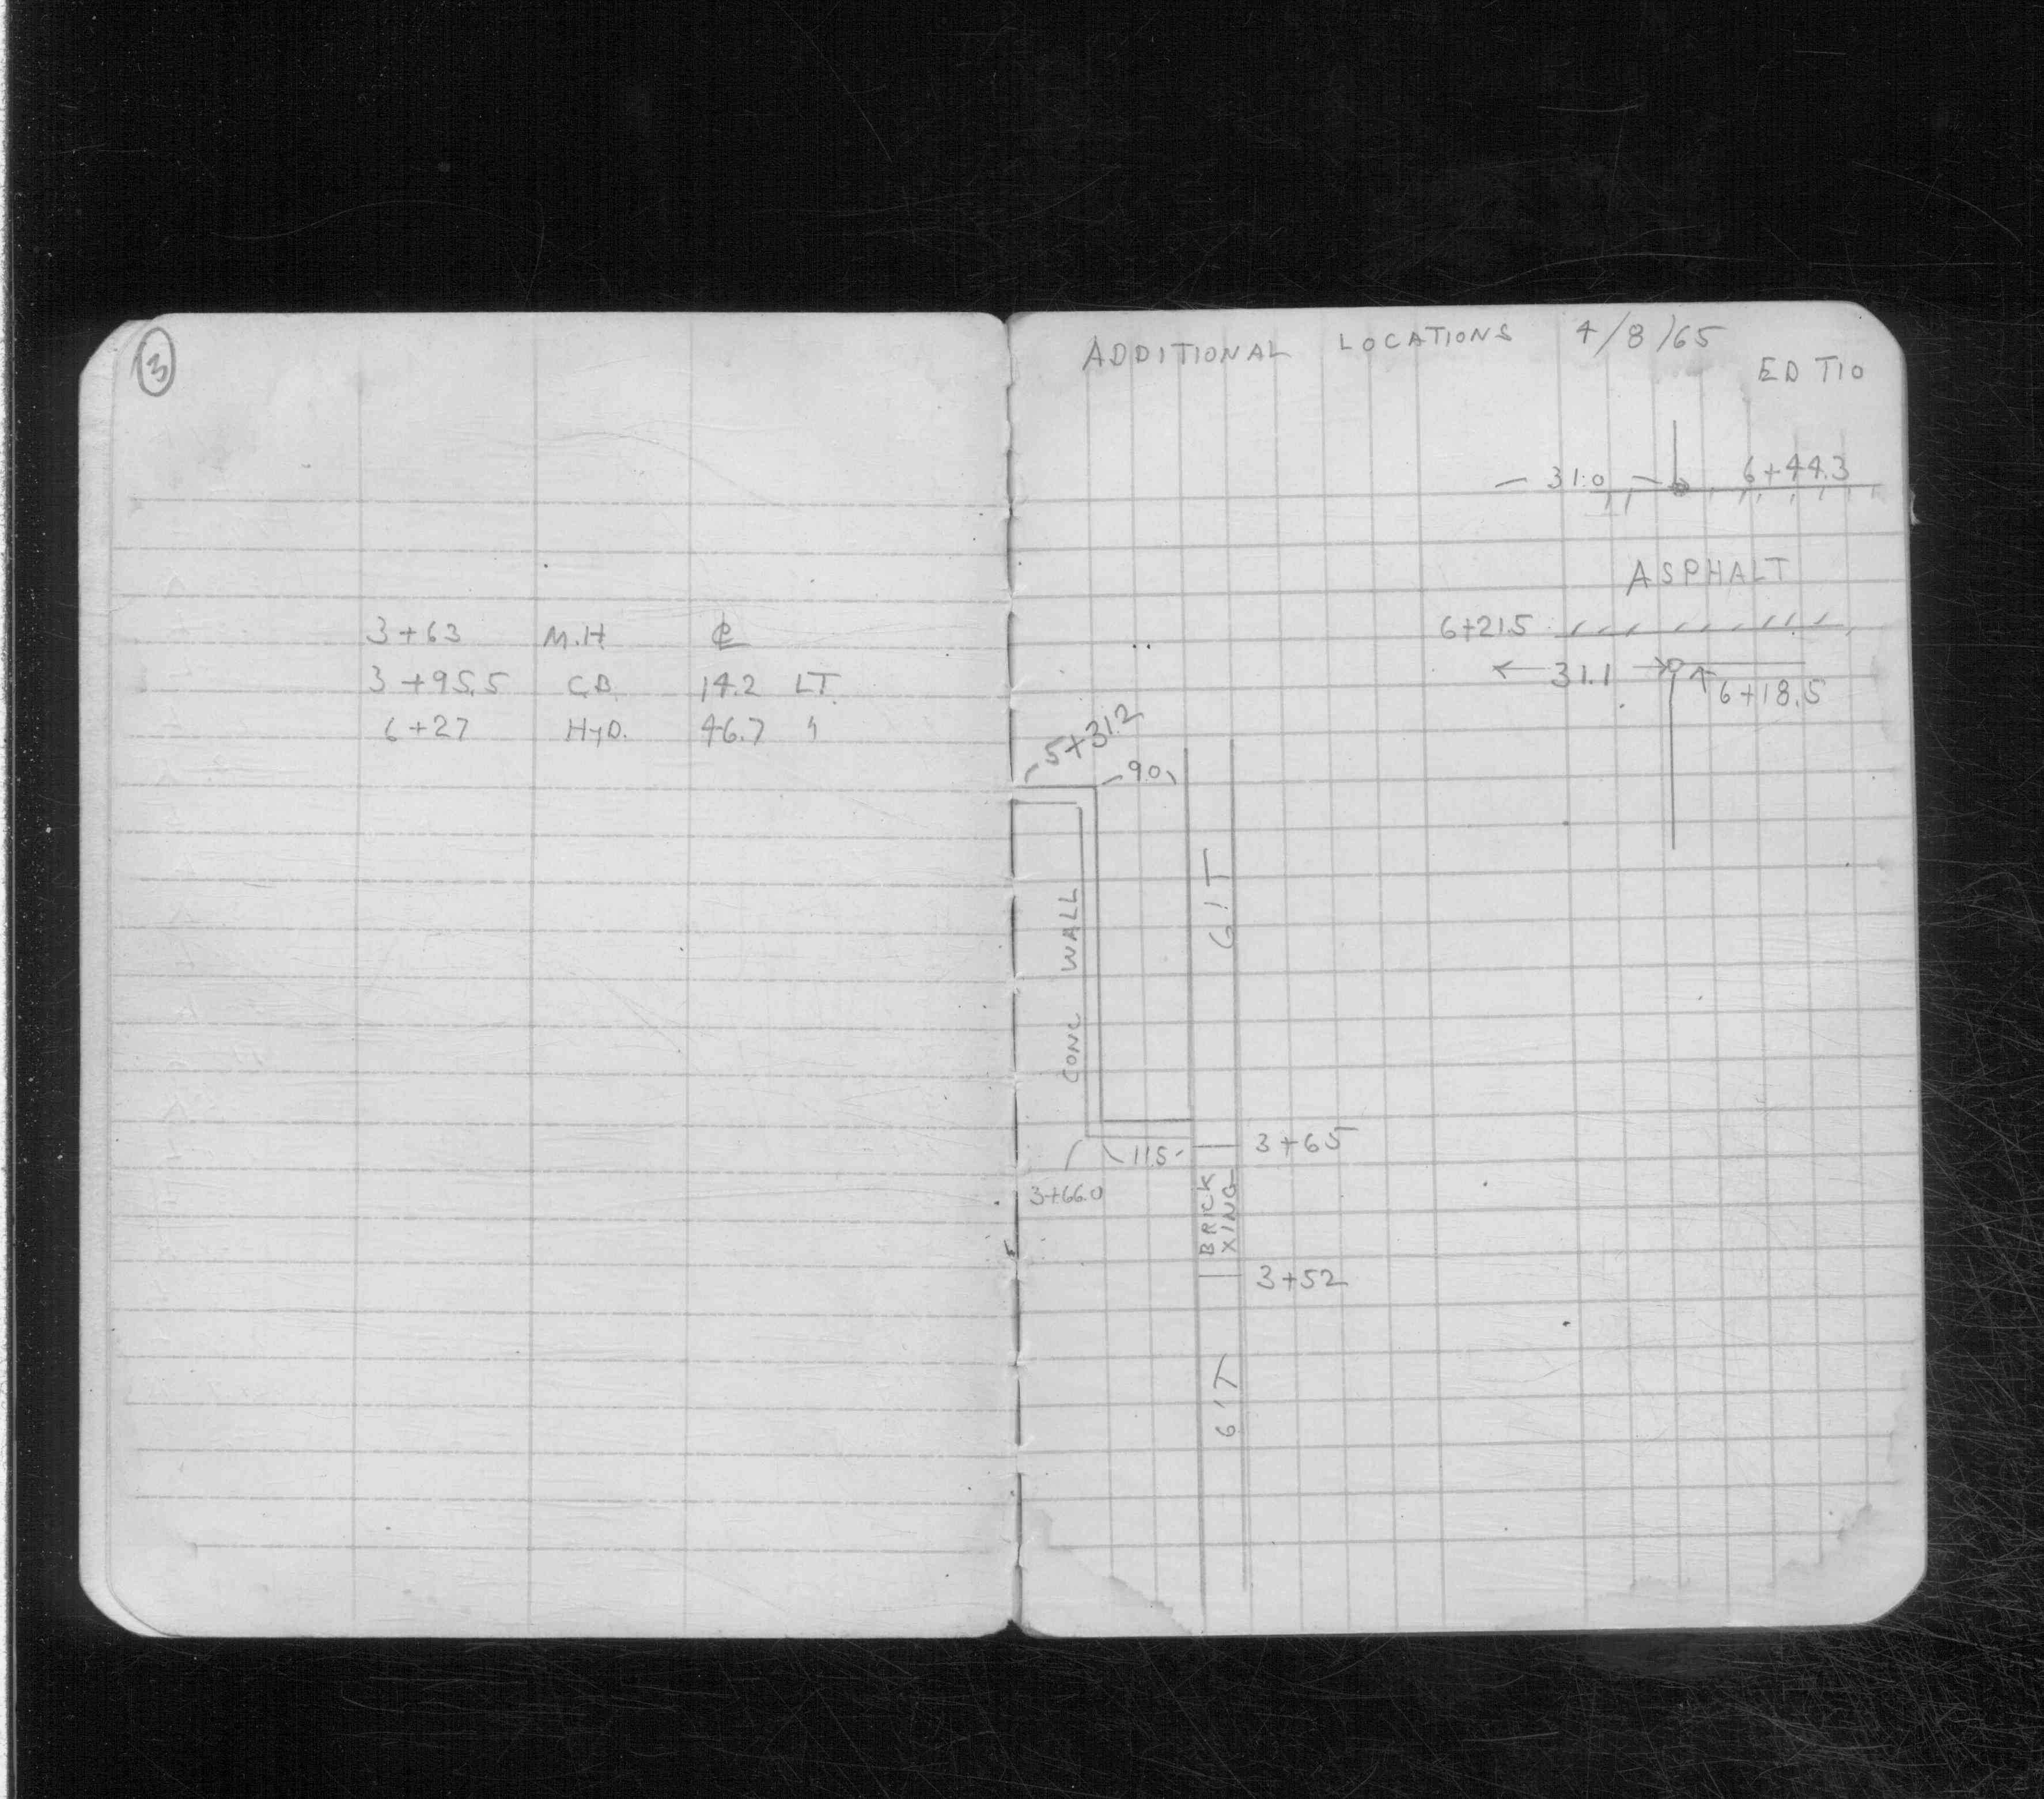 3
3+63 M.H ℄
3+95.5 C.B. 14.2 LT.
6+27 HYD. 46.7 "
ADDITIONAL LOCATIONS 4/8/65
ED TIO
31.0 6+44.3
ASPHALT
6+21.5
31.1
6+18.5
5+31.2
9.0
6' T
CONC WALL
3+65
11.5
3+66.0
BRICK
XING
3+52
6' T